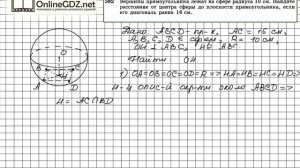 OnlineGDZ.net
582
Вершины прямоугольника лежат на сфере радиуса 10 см. Найдите
расстояние от центра сферы до плоскости прямоугольника, если
его диагональ равна 16 см.
Дано: ABCD - пр-к, AC = 16 см,
A, B, C, D ∈ сфере, R = 10 см,
OH ⊥ ABC, H ∈ ABC
Найти: OH
1) OA = OB = OC = OD = R => HA = HB = HC = HD =>
H - ц. опис-й окр-ти около ABCD =>
H = AC ∩ BD